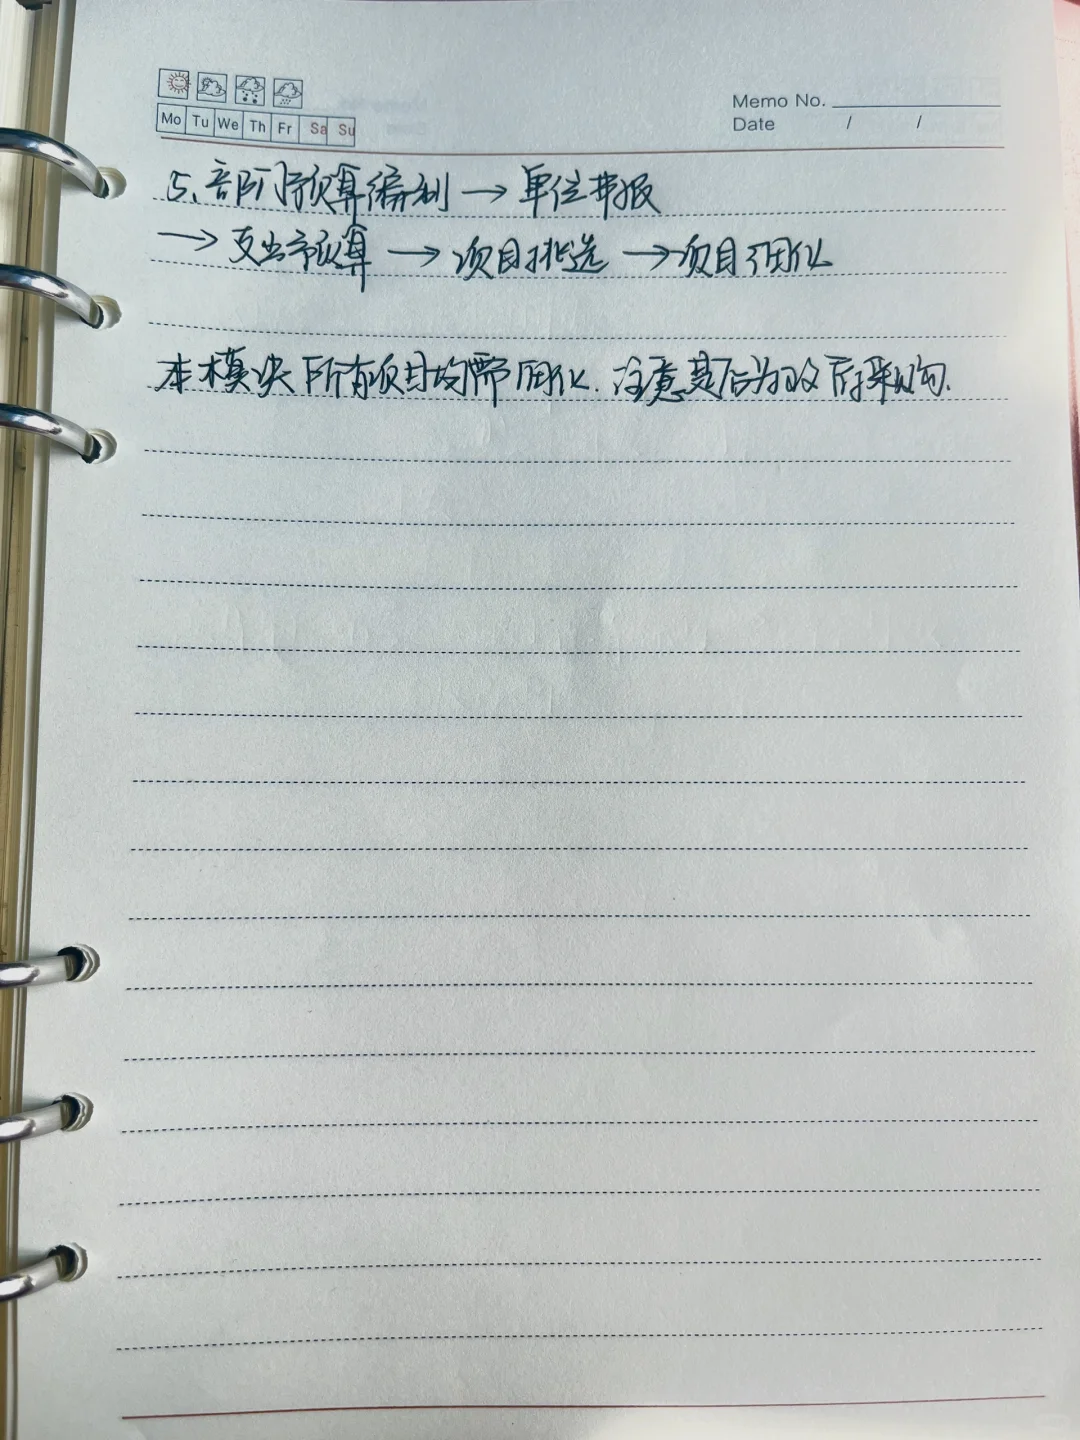 Mo Tu We Th Fr Sa Su
Memo No.
Date / /
5、部门预算编制 → 单位申报
→ 支出预算 → 项目挑选 → 项目细化
本模块所有项目均需细化. 注意是否为政府采购.